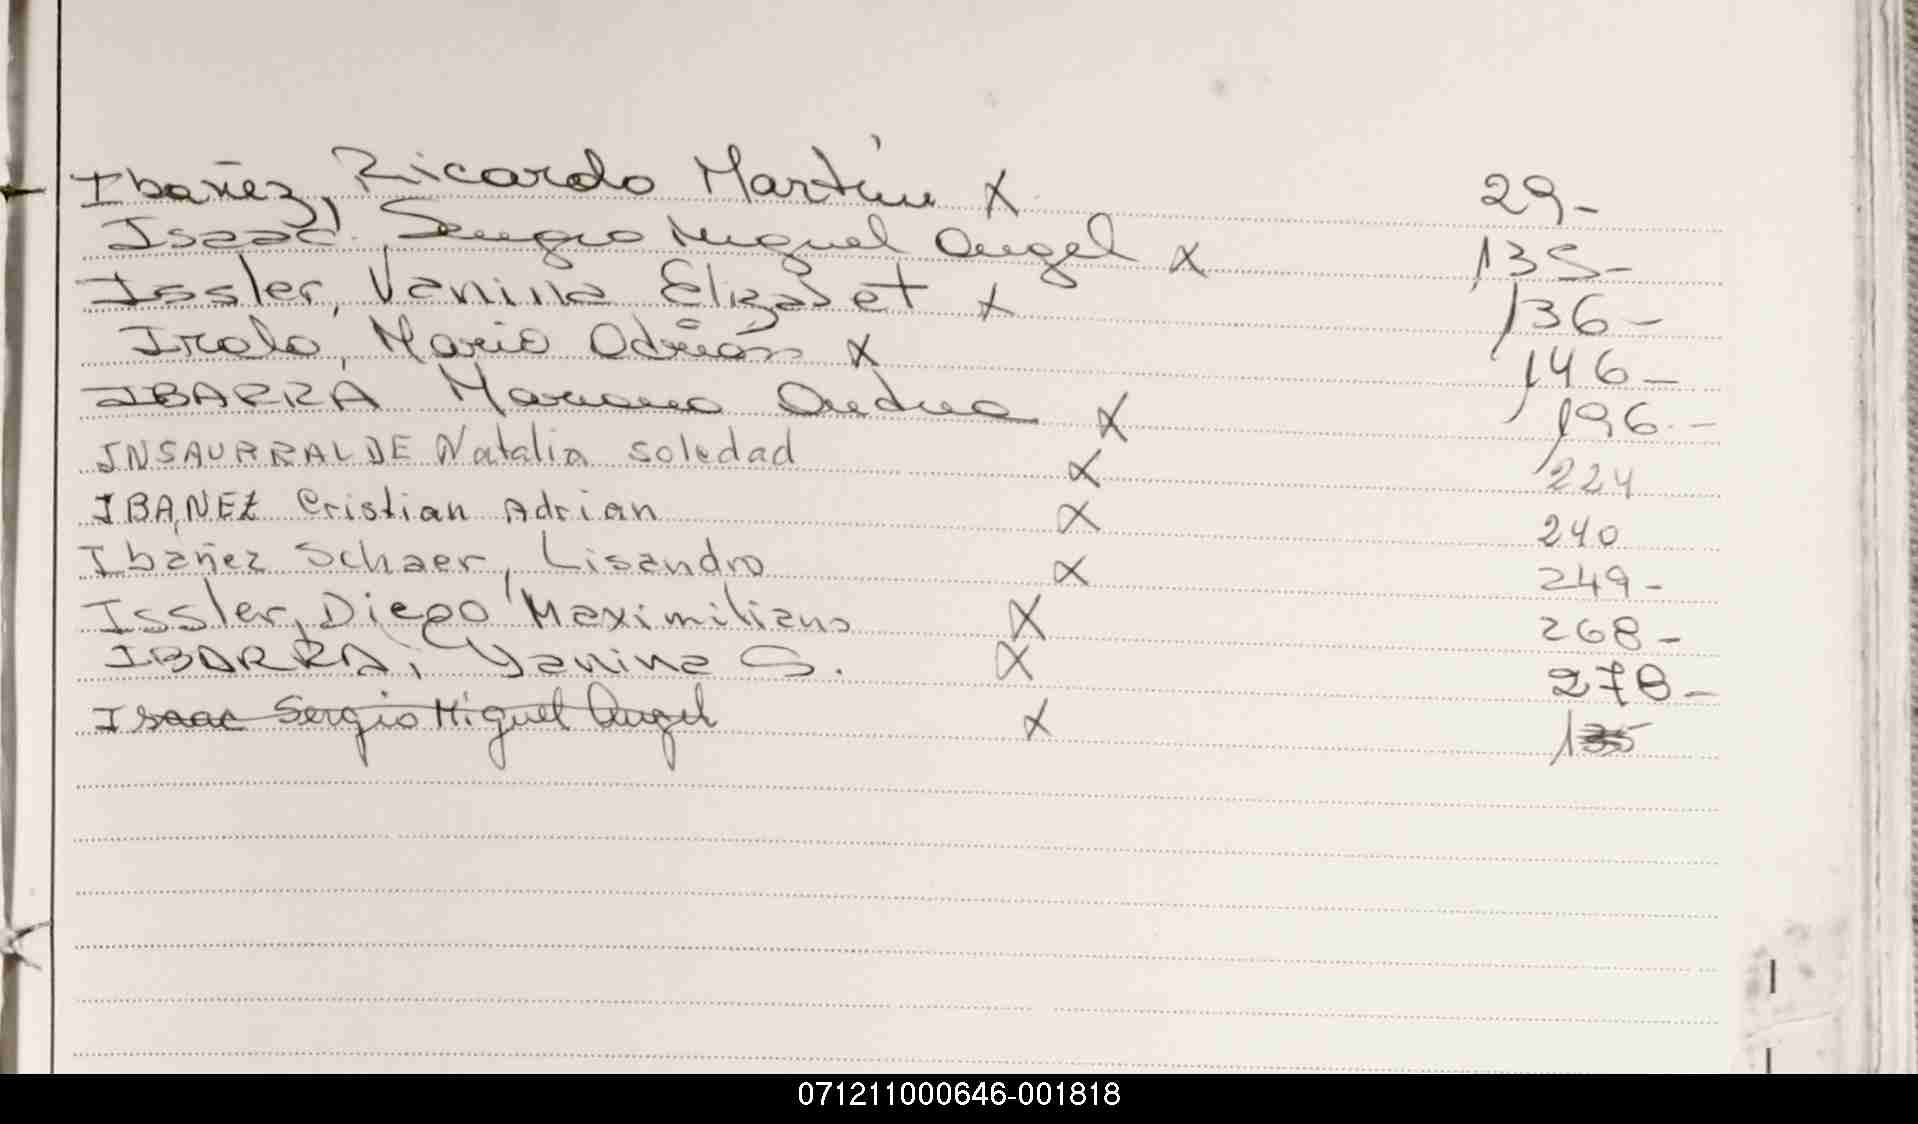 Ibañez, Ricardo Martín X 29-
Isaac, Sergio Miguel Angel X 135-
Issler, Vanina Elizabet X 136-
Iralo, Mario Adrián X 146-
IBARRA Mariano Andrea X 196.-
INSAURRALDE Natalia soledad X 224
IBANEZ Cristian Adrian X 240
Ibañez Schaer, Lisandro X 249-
Issler, Diego Maximiliano X 268-
IBARRA, Yanina S. X 278-
Isaac Sergio Miguel Angel X 135
071211000646-001818